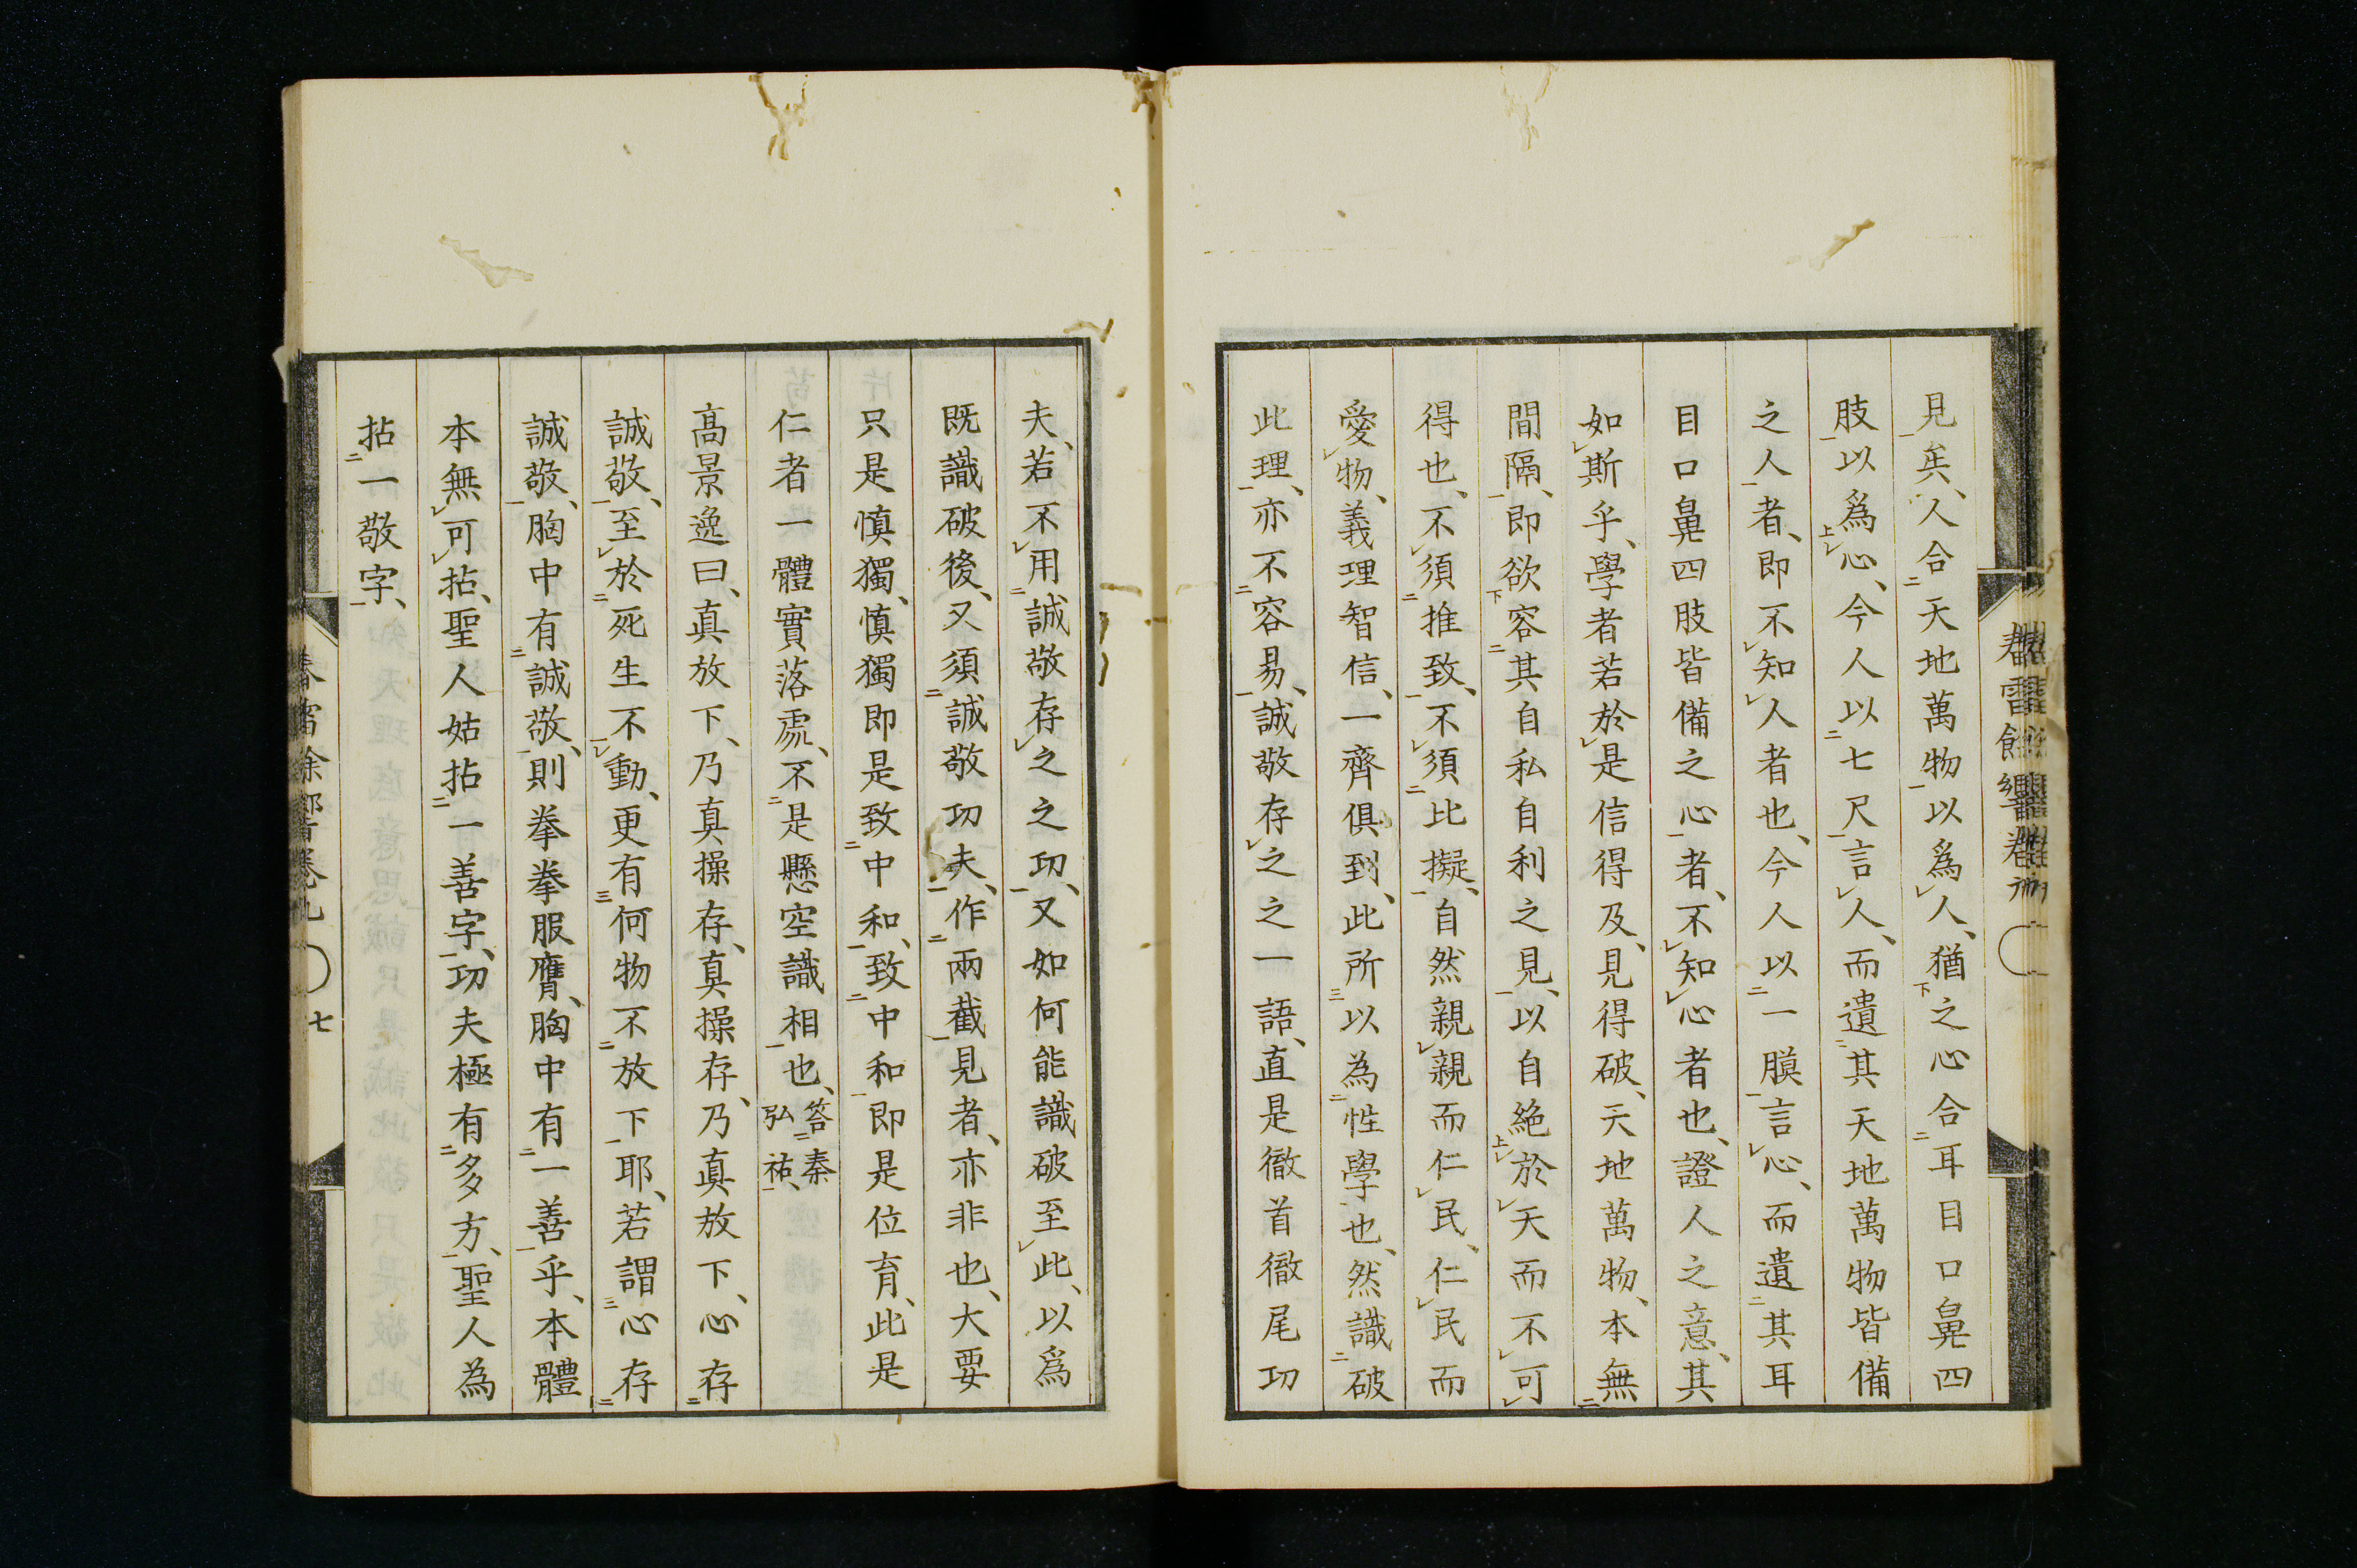 見矣、人合天地萬物以爲人、猶之心合耳目口鼻四
肢以爲心、今人以七尺言人、而遺其天地萬物皆備
之人者、即不知人者也、今人以一膜言心、而遺其耳
目口鼻四肢皆備之心者、不知心者也、證人之意、其
如斯乎、學者若於是信得及、見得破、天地萬物、本無
間隔、即欲容其自私自利之見、以自絶於天而不可
得也、不須推致、不須比擬、自然親親而仁民、仁民而
愛物、義理智信、一齊俱到、此所以為性學也、然識破
此理、亦不容易、誠敬存之之一語、直是徹首徹尾功
夫、若不用誠敬存之之功、又如何能識破至此、以爲
既識破後、又須誠敬功夫、作兩截見者、亦非也、大要
只是慎獨、慎獨即是致中和、致中和即是位育、此是
仁者一體實落處、不是懸空識相也、答秦弘祐、
高景逸曰、真放下、乃真操存、真操存、乃真放下、心存
誠敬、至於死生不動、更有何物不放下耶、若謂心存
誠敬、胸中有誠敬、則拳拳服膺、胸中有一善乎、本體
本無可拈、聖人姑拈一善字、功夫極有多方、聖人為
拈一敬字、
七